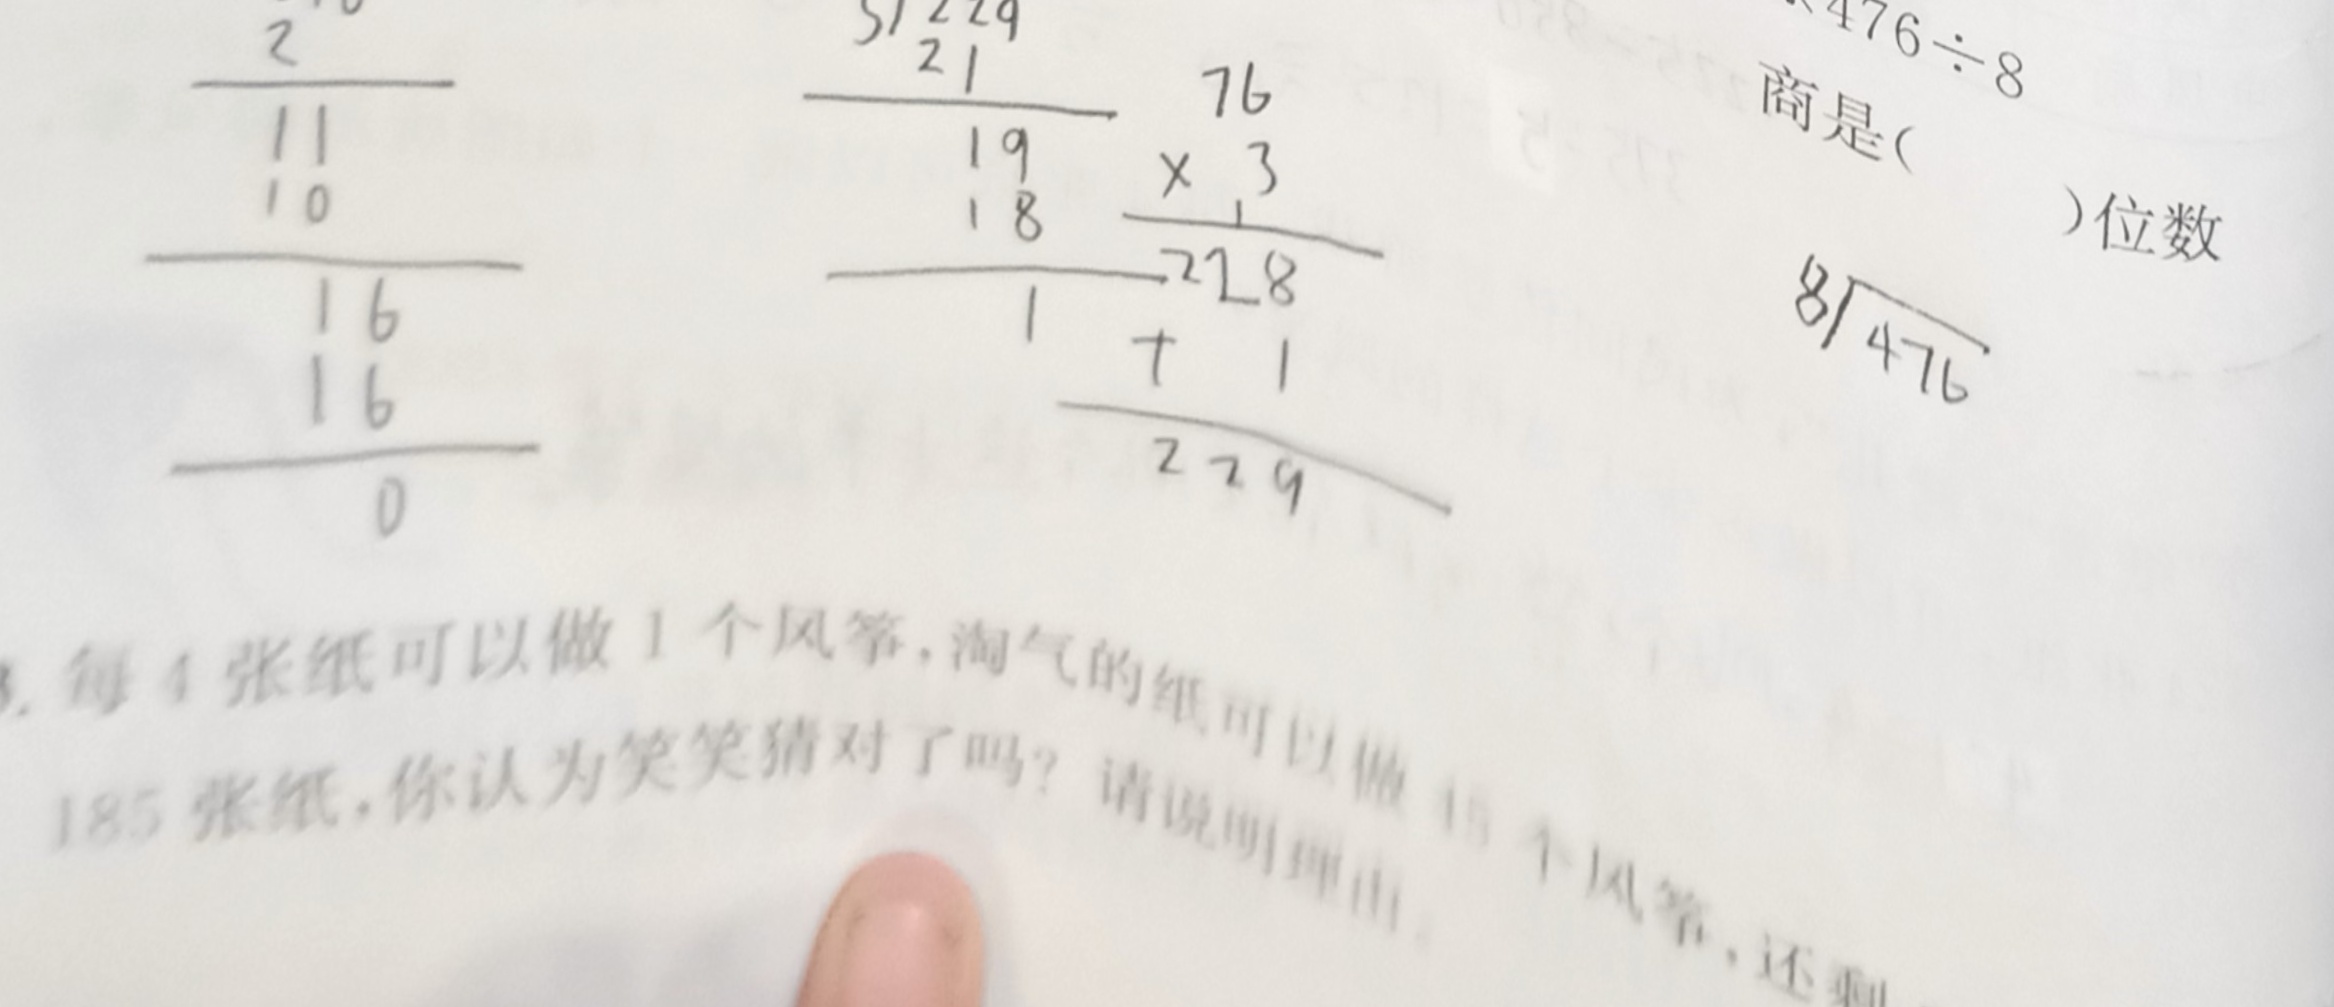 2
11
10
16
16
0
3 229
21
19
18
1
76
× 3
1
228
+ 1
229
476÷8
商是( )位数
8 476
3. 每4张纸可以做1个风筝,淘气的纸可以做45个风筝,还剩
185张纸,你认为笑笑猜对了吗?请说明理由。